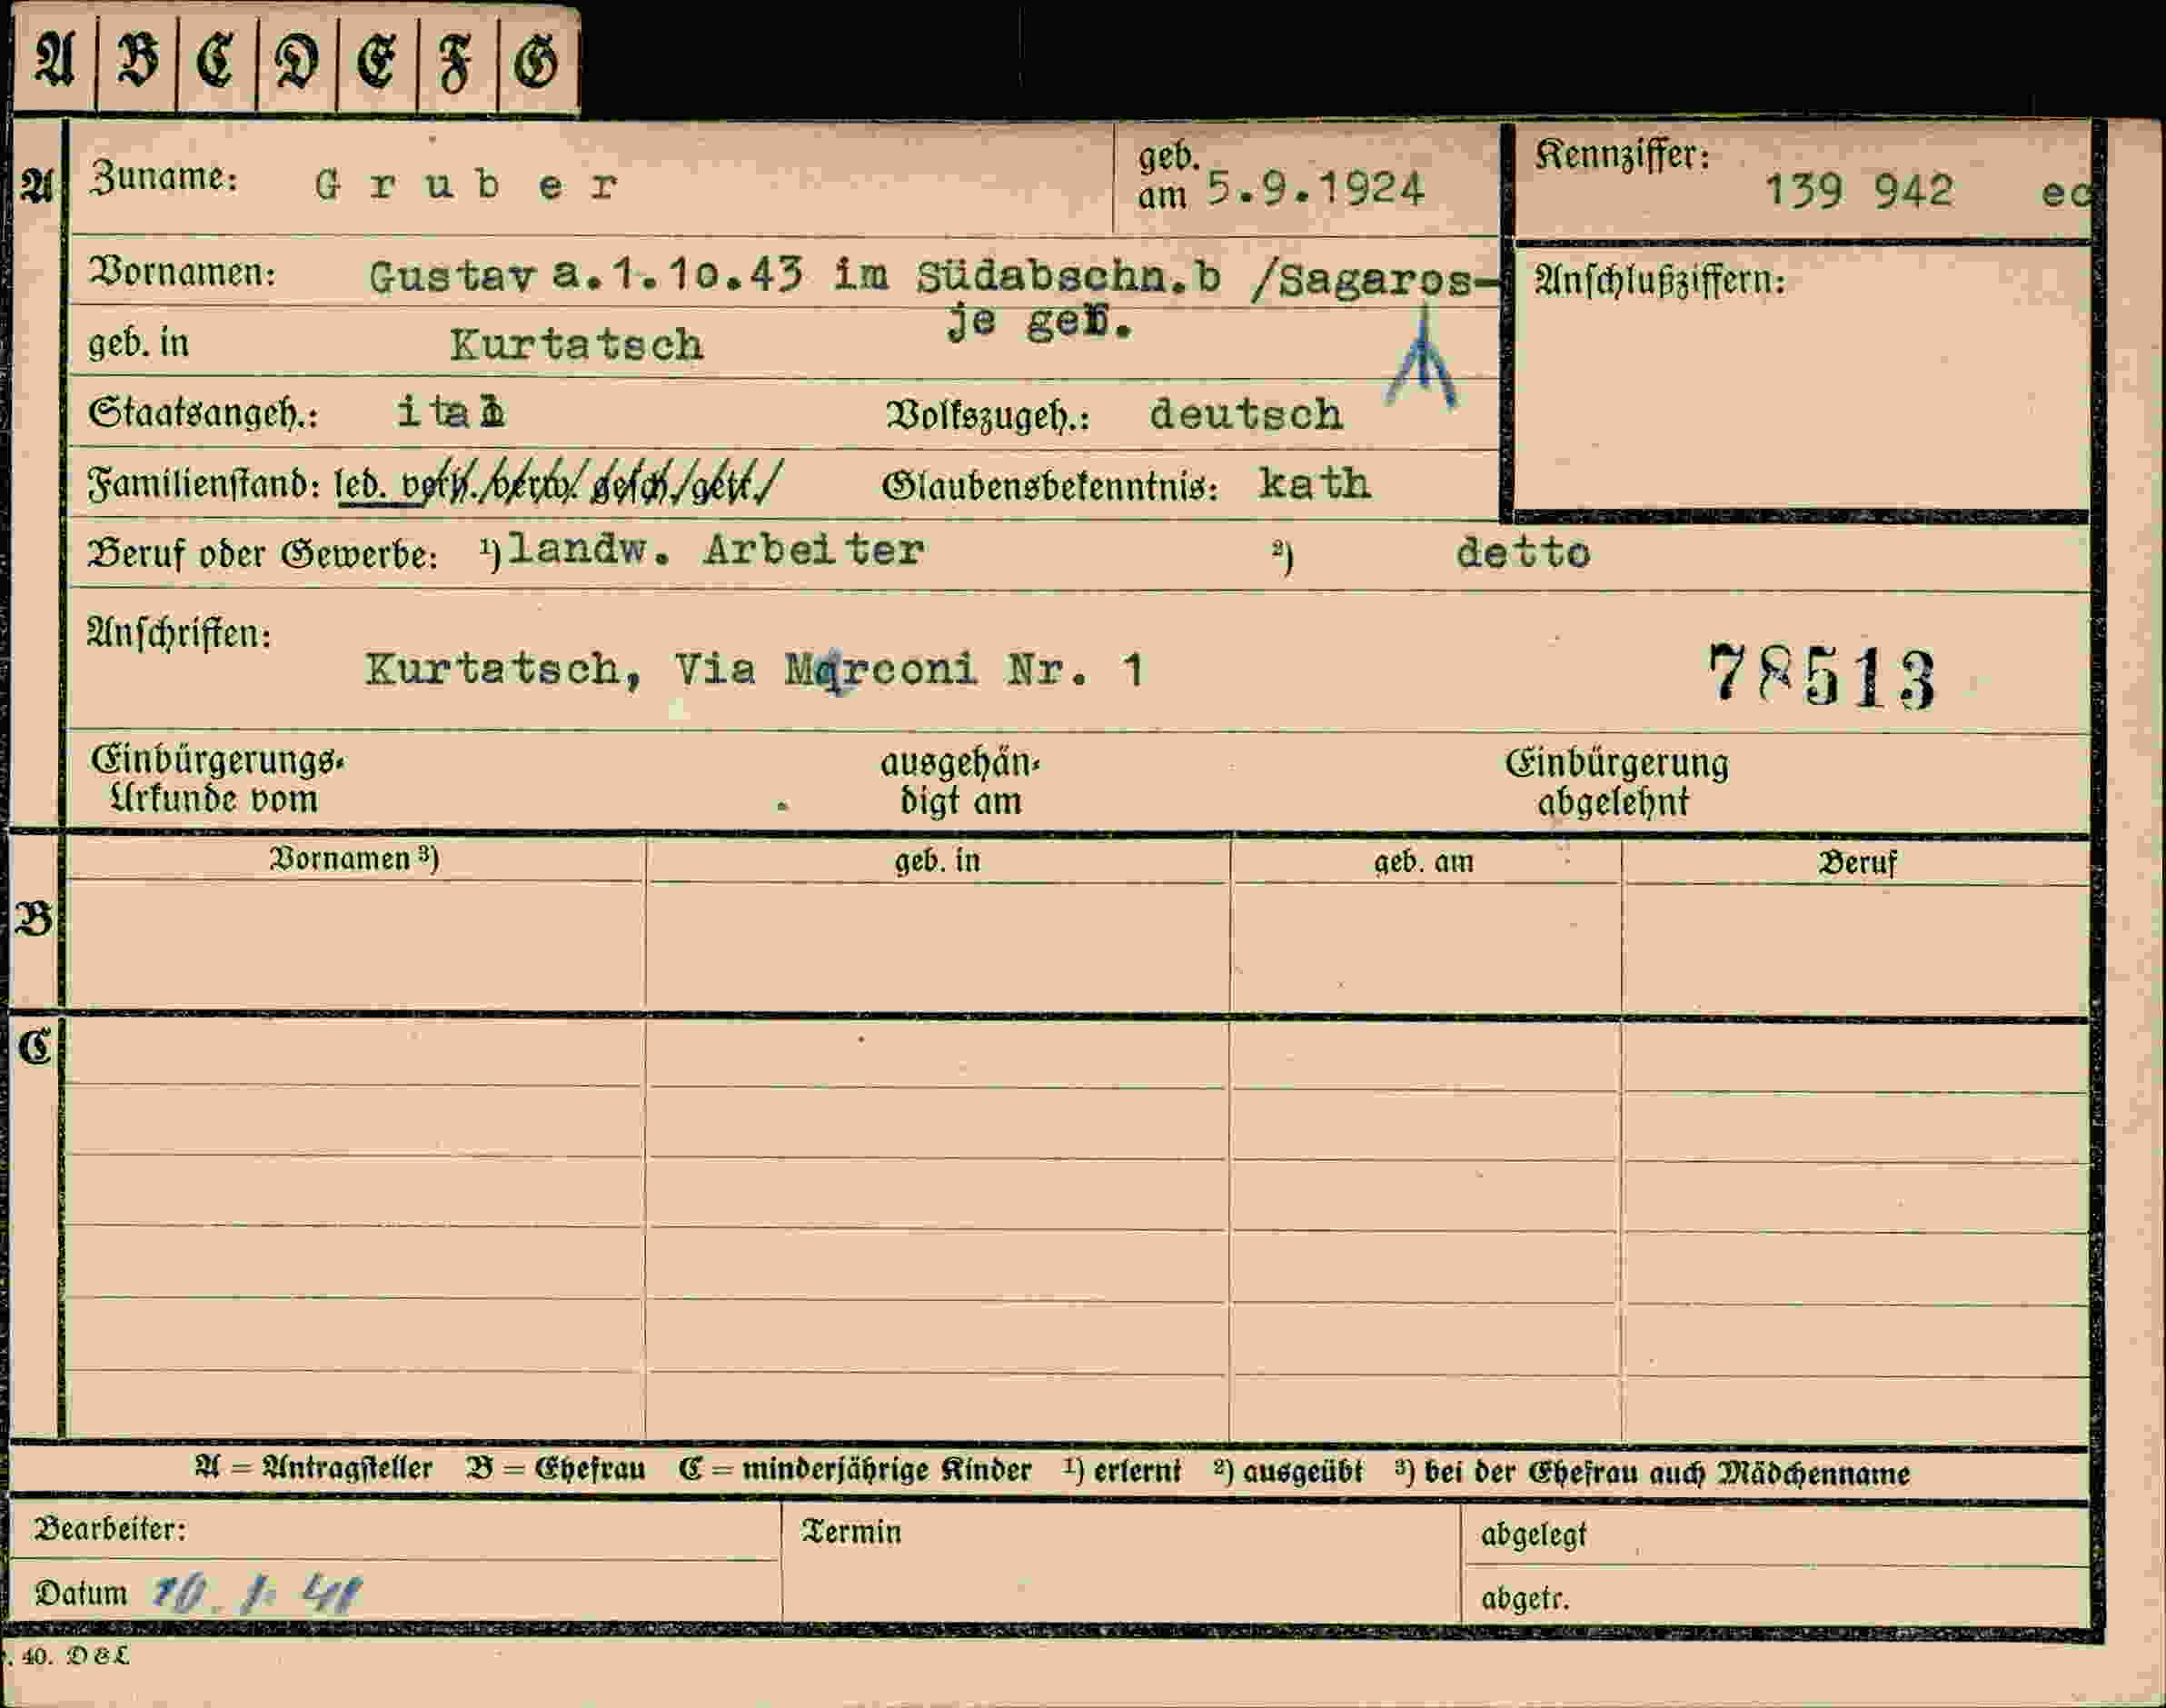 A B C D E F G
A Zuname: Gruber geb. am 5.9.1924 Kennziffer: 139 942
Vornamen: Gustav a.1.10.43 im Südabschn.b /Sagaros- Anschlußziffern:
je gef.
geb. in Kurtatsch
Staatsangeh.: ital Volkszugeh.: deutsch
Familienstand: led. verh. verw. gesch. getr. Glaubensbekenntnis: kath
Beruf oder Gewerbe: ¹) landw. Arbeiter ²) detto
Anschriften:
Kurtatsch, Via Marconi Nr. 1 78513
Einbürgerungs- ausgehän- Einbürgerung
Urkunde vom digt am abgelehnt
Vornamen ³) geb. in geb. am Beruf
B
C
A = Antragsteller B = Ehefrau C = minderjährige Kinder ¹) erlernt ²) ausgeübt ³) bei der Ehefrau auch Mädchenname
Bearbeiter: Termin abgelegt
Datum 10. 1. 41 abgetr.
40. D & L